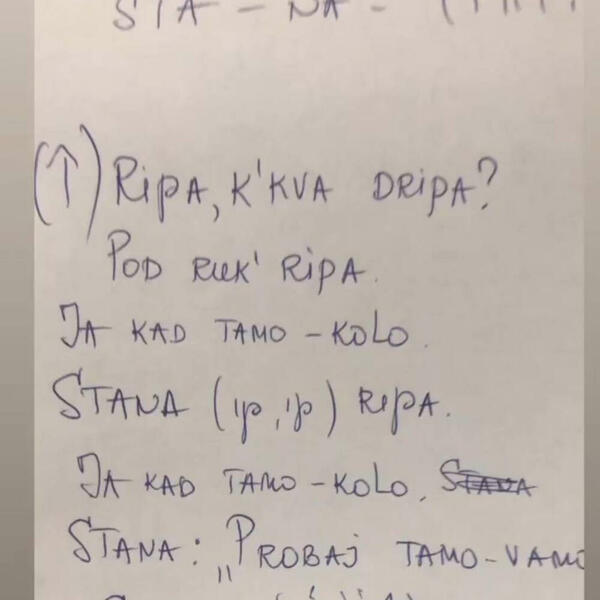 STA - NA -
(↑) RiPA, K'KVA DRiPA?
POD RUK' RiPA.
JA KAD TAMO - KOLO.
STANA (ip, ip) RiPA.
JA KAD TAMO - KOLO. STANA
STANA: „PROBAJ TAMO-VAMO